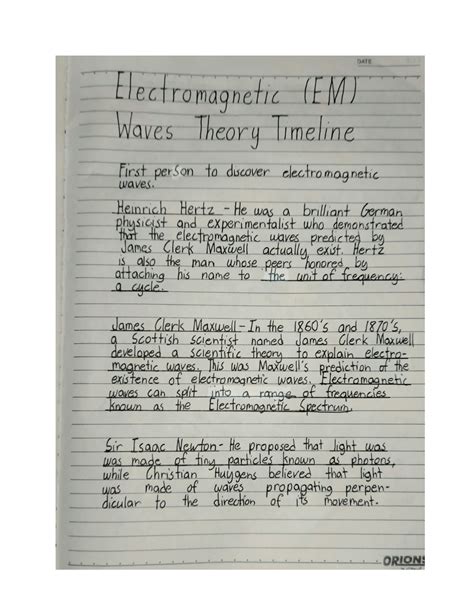 DATE
Electromagnetic (EM)
Waves Theory Timeline
First person to discover electromagnetic
waves.
Heinrich Hertz - He was a brilliant German
physicist and experimentalist who demonstrated
that the electromagnetic waves predicted by
James Clerk Maxwell actually exist. Hertz
is also the man whose peers honored by
attaching his name to the unit of frequency:
a cycle.
James Clerk Maxwell - In the 1860's and 1870's,
a Scottish scientist named James Clerk Maxwell
developed a scientific theory to explain electro-
magnetic waves. This was Maxwell's prediction of the
existence of electromagnetic waves. Electromagnetic
waves can split into a range of frequencies
known as the Electromagnetic Spectrum.
Sir Isaac Newton - He proposed that light was
was made of tiny particles known as photons,
while Christian Huygens believed that light
was made of waves propagating perpen-
dicular to the direction of its movement.
ORIONS